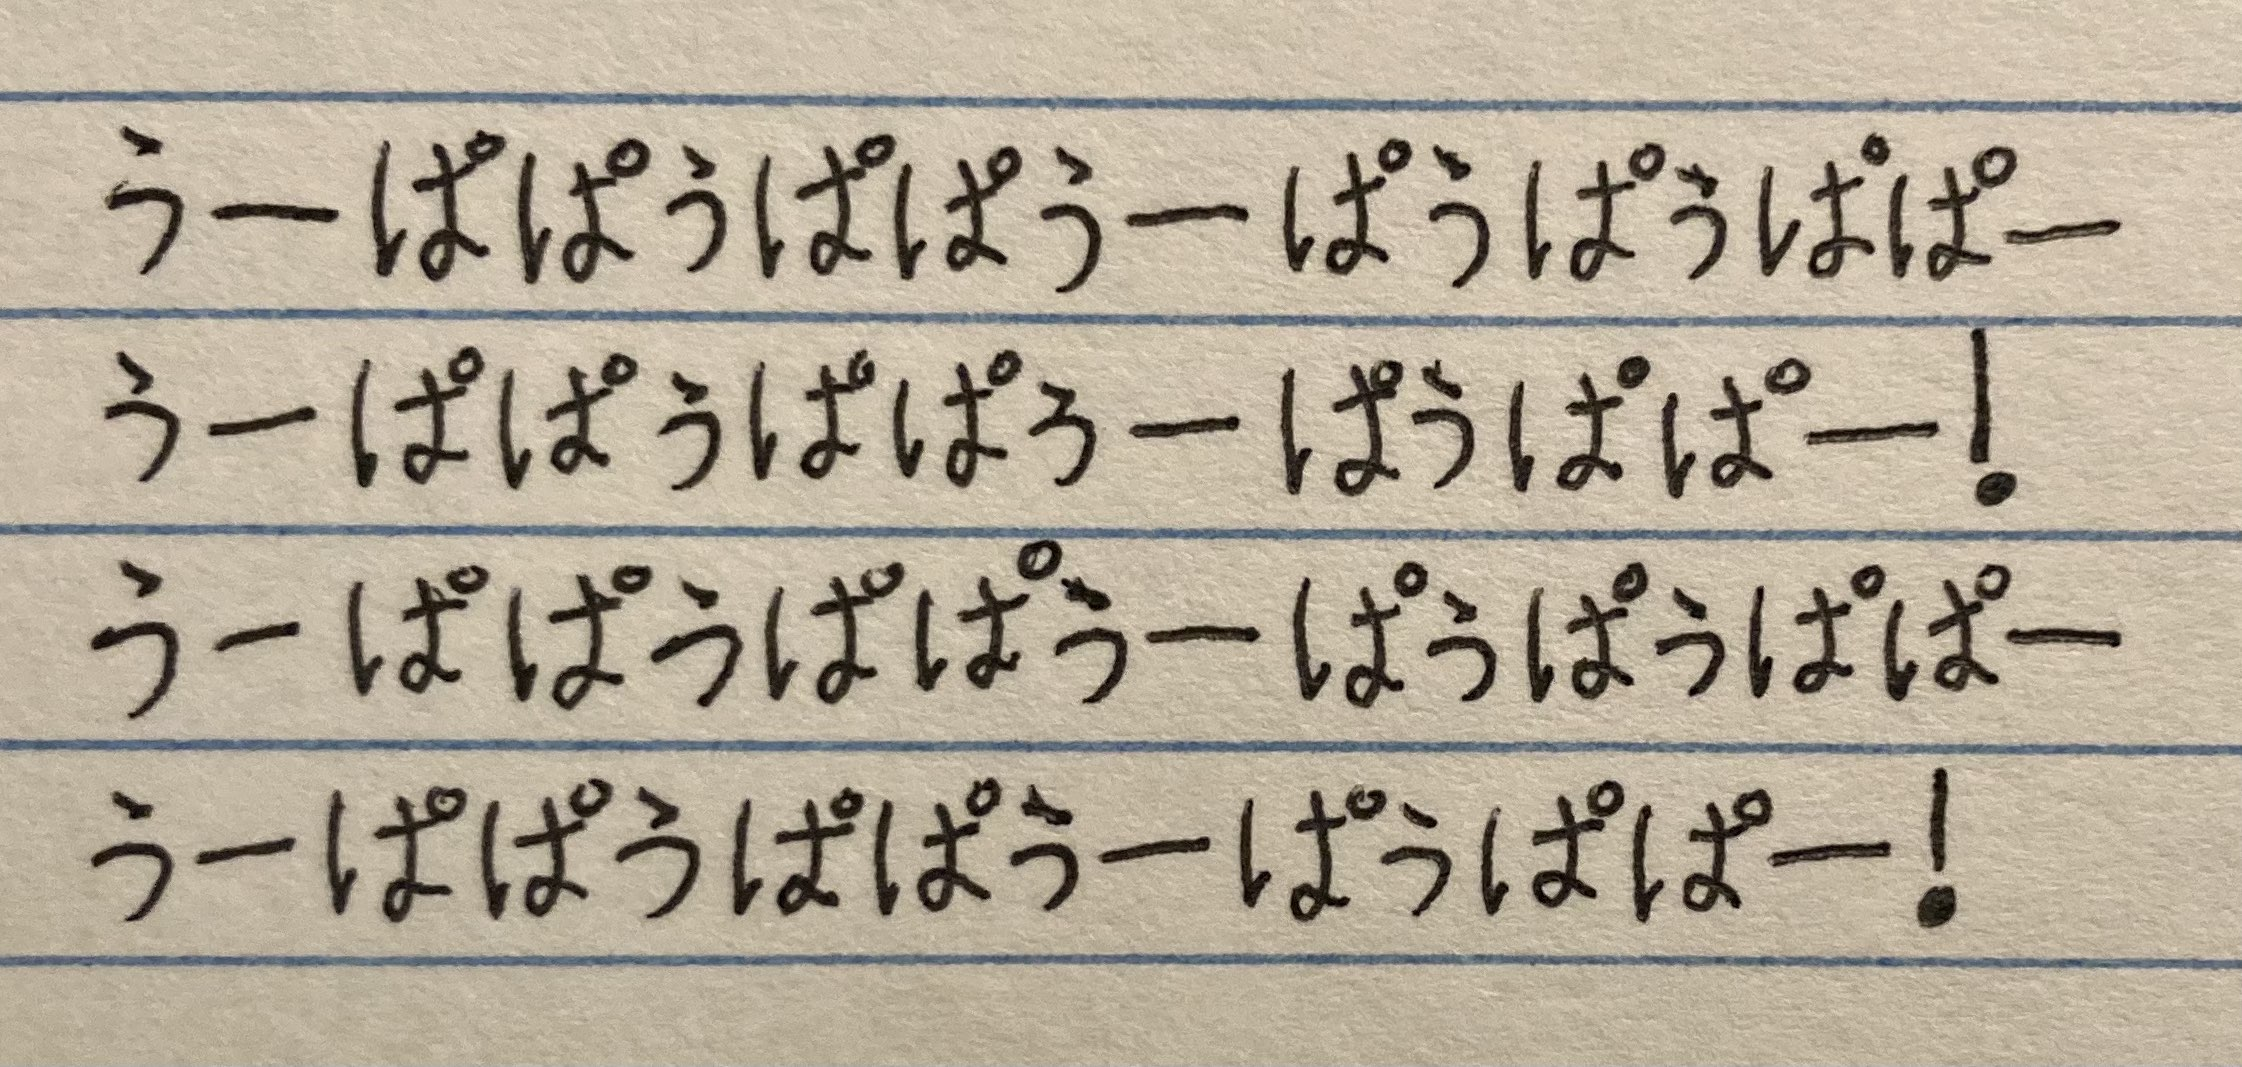 うーぱぱうぱぱうーぱうぱうぱぱー
うーぱぱうぱぱうーぱうぱぱー！
うーぱぱうぱぱうーぱうぱうぱぱー
うーぱぱうぱぱうーぱうぱぱー！